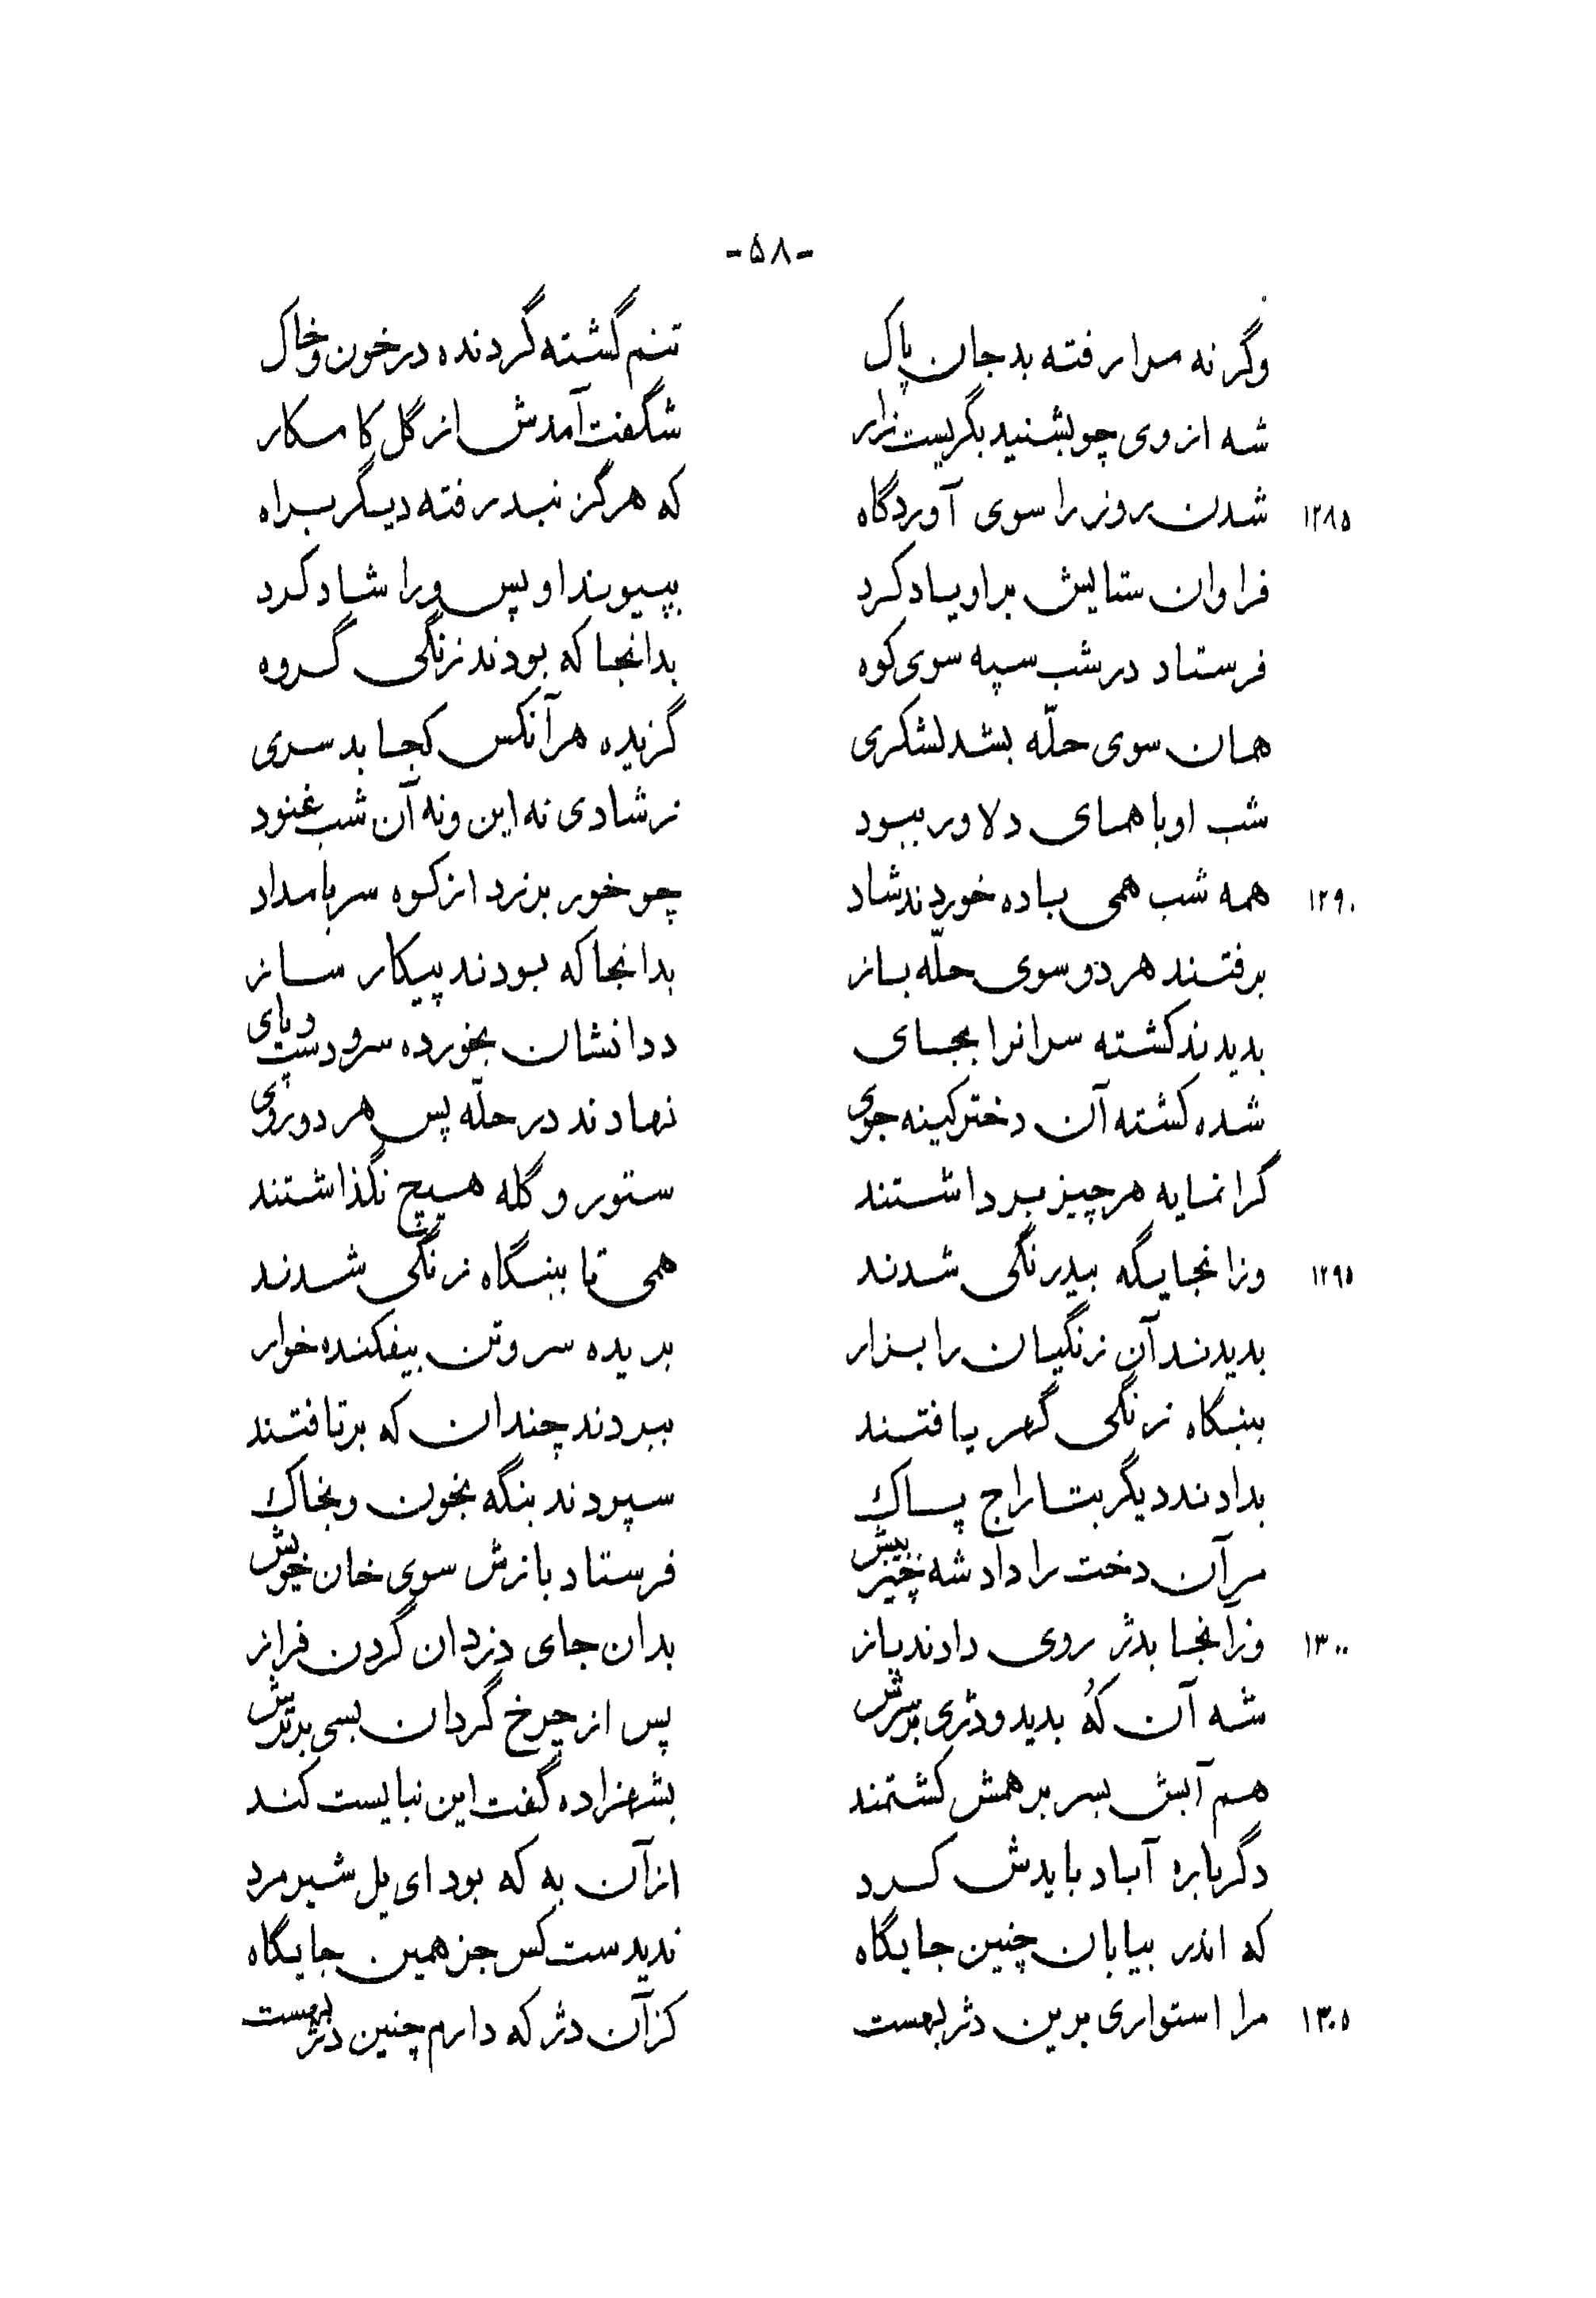 -۵۸-
وگرنه مرا رفته بد جان پاک تنم گشته گردنده در خون و خاک
شه از وی چو بشنید بگریست زار شگفت آمدش از گل کامکار
۱۲۸۵ شدن روز را سوی آوردگاه که هرگز نبد رفته دیگر براه
فراوان ستایش بر او یاد کرد بپیوند او پس ورا شاد کرد
فرستاد در شب سپه سوی کوه بدانجا که بودند زنگی گروه
همان سوی حلّه بشد لشکری گزیده هر آنکس کجا بد سری
شب او با همای دلاور ببود ز شادی نه این و نه آن شب غنود
۱۲۹۰ همه شب همی باده خوردند شاد چو خور برزد از کوه سر بامداد
برفتند هر دو سوی حلّه باز بدانجا که بودند پیکار ساز
بدیدند کشته سرانرا بجای ددانشان بخورده سر و دست و پای
شده کشته آن دختر کینه جوی نهادند در حلّه پس هر دو روی
گرانمایه هر چیز برداشتند ستور و گله هیچ نگذاشتند
۱۲۹۵ وزانجایگه بیدرنگی شدند همی تا ببنگاه زنگی شدند
بدیدند آن زنگیان را بزار بریده سر و تن بیفکنده خوار
ببنگاه زنگی گهر یافتند ببردند چندان که برتافتند
بدادند دیگر بتاراج پاک سپردند بنگه بخون و بخاک
مر آن دخت را داد شه چیز بیش فرستاد بازش سوی خان خویش
۱۳۰۰ وزآنجا بدژ روی دادند باز بدان جای دزدان گردن فراز
شه آن کُه بدید و دژی بر سرش پس از چرخ گردان بسی برترش
هم آبش بسر بر همش کشتمند بشهزاده گفت این نبایست کند
دگرباره آباد بایدش کرد از آن به که بود ای یل شیرمرد
که اندر بیابان چنین جایگاه ندیدست کس جز همین جایگاه
۱۳۰۵ مرا استواری برین دژ بهست کز آن دژ که دارم چنین دژ بهست